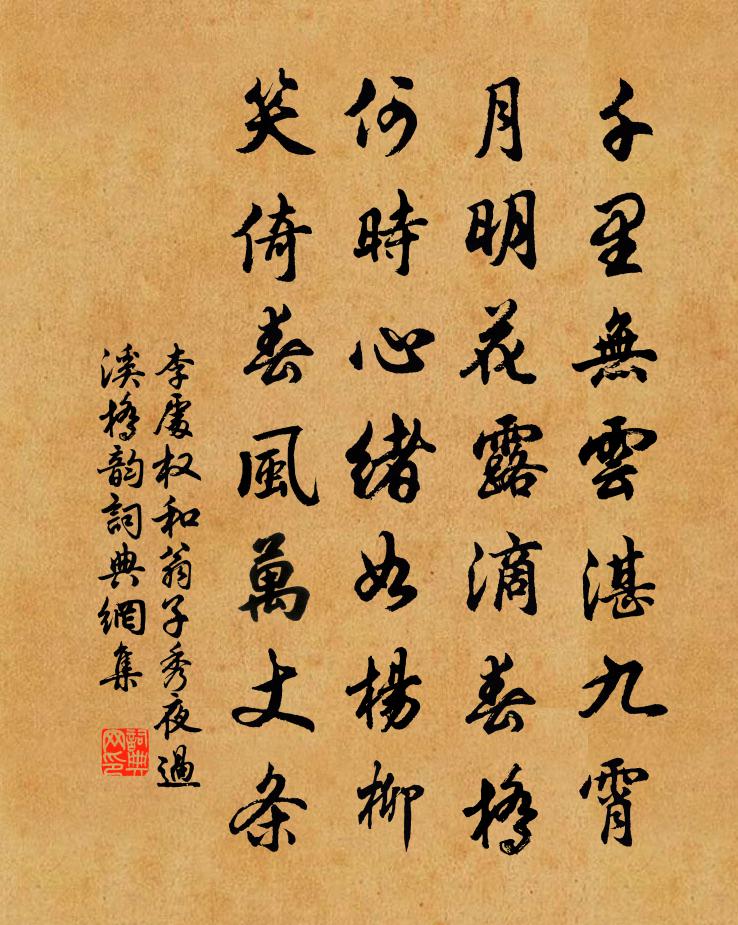 千里無雲湛九霄
月明花露滴春橋
何時心緒如楊柳
笑倚春風萬丈条
李處权和翁子秀夜過
溪橋韵詞典網集
詞典网印